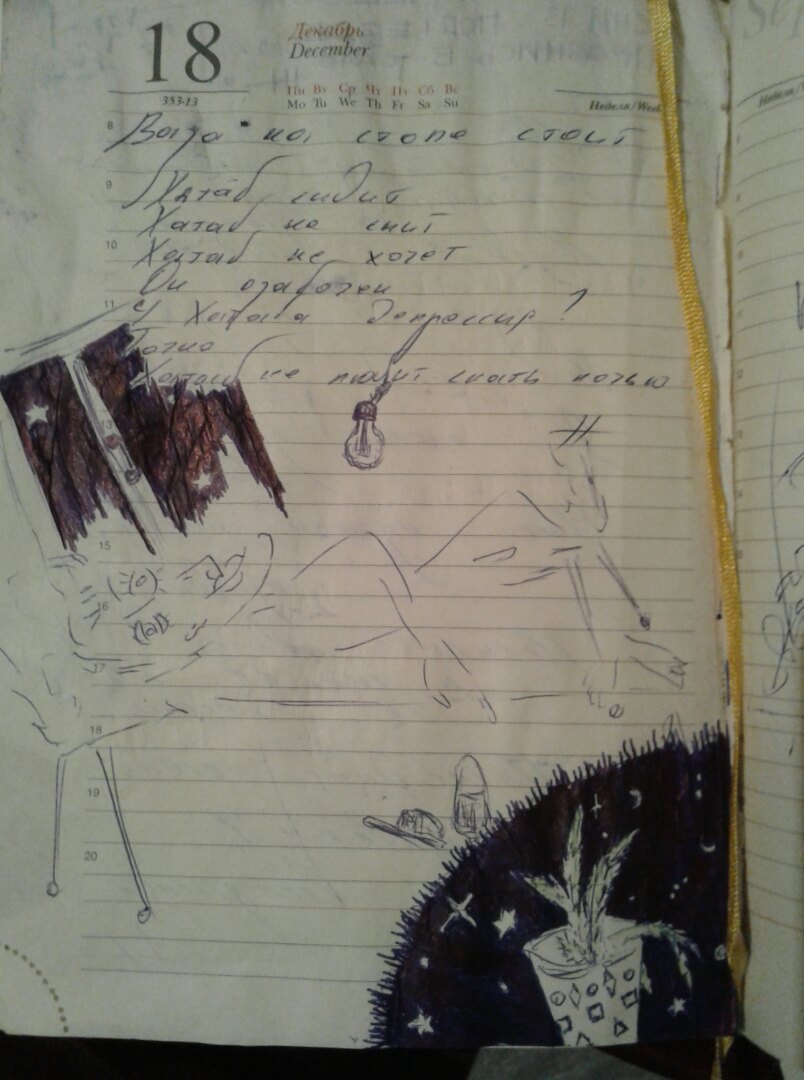 18
Декабрь
December
Пн Вт Ср Чт Пт Сб Вс
Mo Tu We Th Fr Sa Su
353-13
Неделя/Week
8
Ваза на столе стоит
9
Хатаб сидит
Хатаб не спит
10
Хатаб не хочет
Он озабочен
11
У Хатаба депрессия?
Точно
Хатаб не любит спать ночью
13
15
16
17
18
19
20